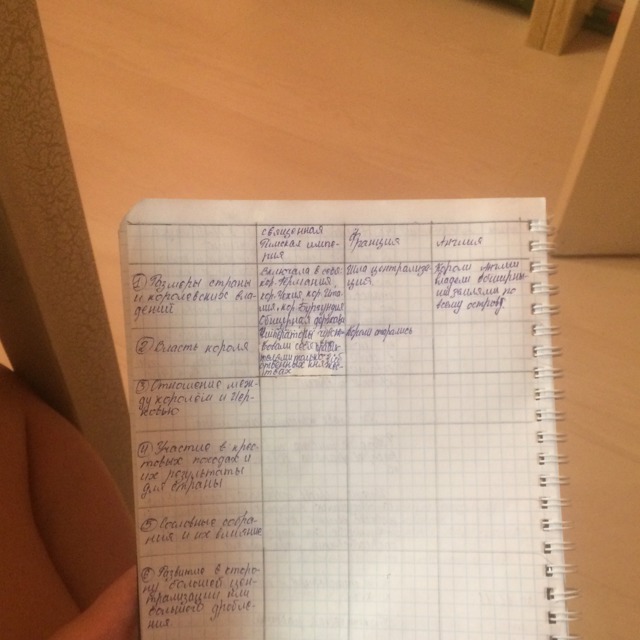 священная
Римская импе-
рия
Франция
Англия
① Размеры страны
и королевские вла-
дений
включала в себя
кор. Германия,
кор. Чехия, кор. Ита-
лия, кор. Бургундия
Обширная держава
Шла централиза-
ция
Короли Англии
владели обширны-
ми землями по
всему острову
② Власть короля
Императоры чувст-
вовали себя
только в
ственных княже-
ствах
Короли старались
③ Отношение меж-
ду королём и Цер-
ковью
④ Участие в крес-
товых походах и
их результаты
для страны
⑤ Сословные собра-
ния и их влияние
⑥ Развитие в сторо-
ну большей цен-
трализации или
большего дробле-
ния